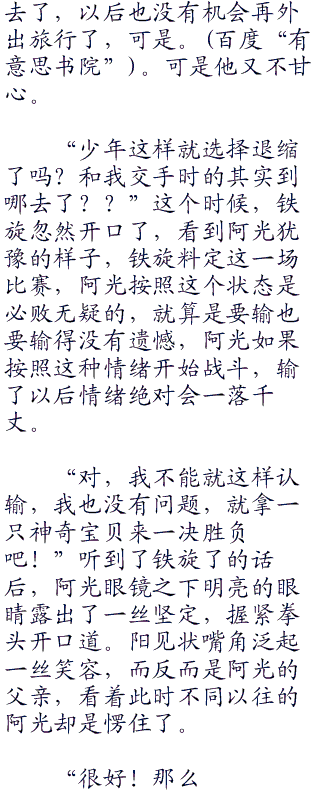 去了，以后也没有机会再外
出旅行了，可是。(百度“有
意思书院”)。可是他又不甘
心。
“少年这样就选择退缩
了吗？和我交手时的其实到
哪去了？？”这个时候，铁
旋忽然开口了，看到阿光犹
豫的样子，铁旋料定这一场
比赛，阿光按照这个状态是
必败无疑的，就算是要输也
要输得没有遗憾，阿光如果
按照这种情绪开始战斗，输
了以后情绪绝对会一落千
丈。
“对，我不能就这样认
输，我也没有问题，就拿一
只神奇宝贝来一决胜负
吧！”听到了铁旋了的话
后，阿光眼镜之下明亮的眼
睛露出了一丝坚定，握紧拳
头开口道。阳见状嘴角泛起
一丝笑容，而反而是阿光的
父亲，看着此时不同以往的
阿光却是愣住了。
“很好！那么